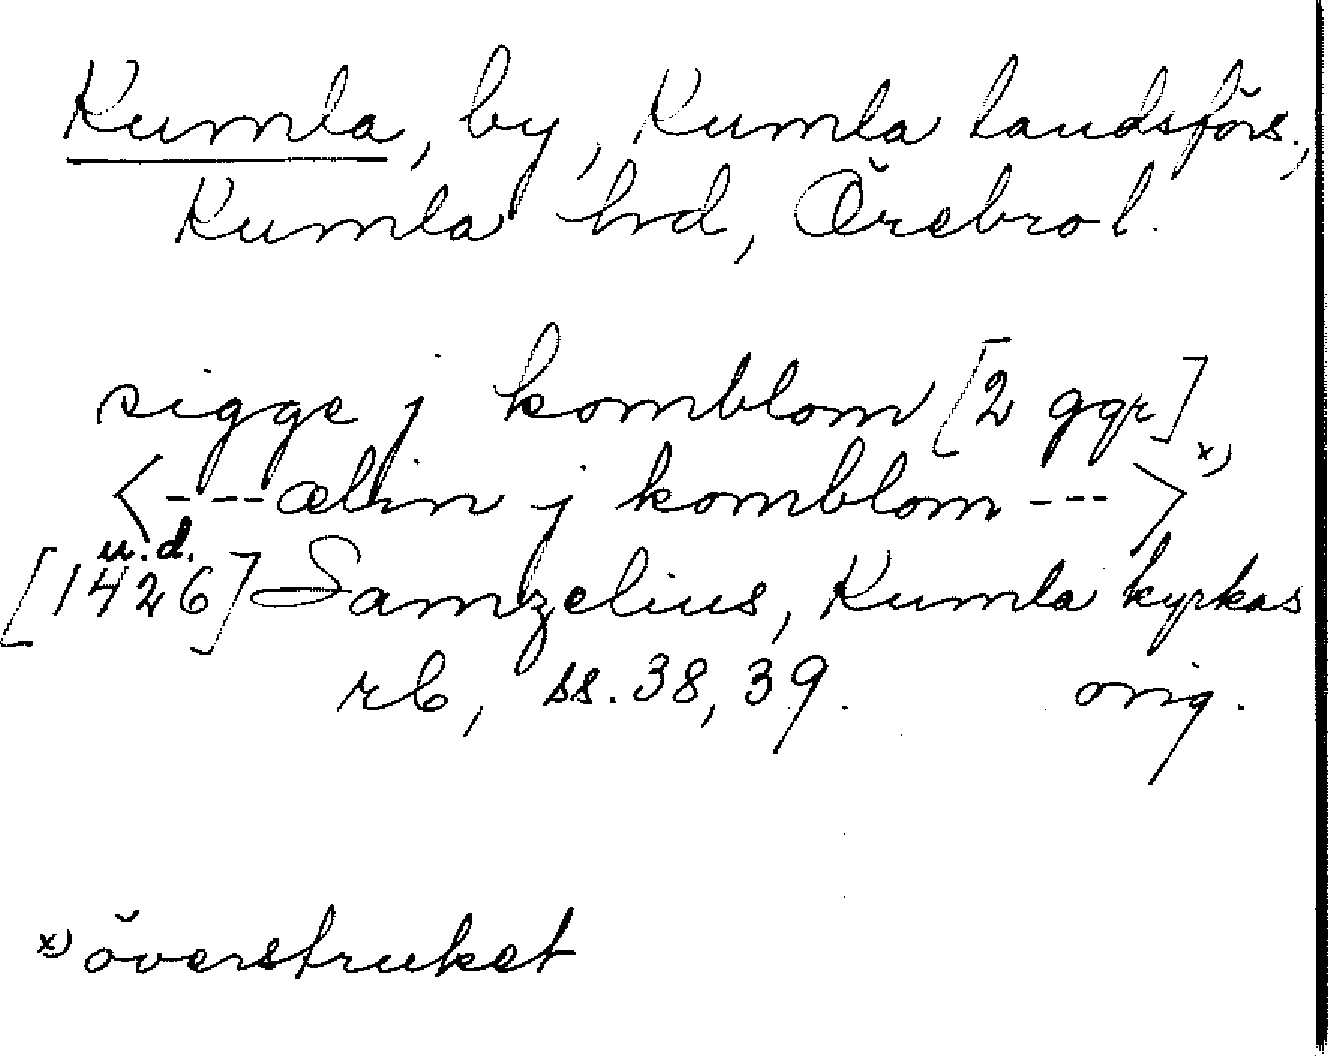 Kumla, by, Kumla landsförs.,
Kumla hd, Örebro l.
sigge j komblom [2 ggr]
<---ælin j komblom --->x)
u.d.
[1426] Samzelius, Kumla kyrkas
rb, ss. 38, 39. orig.
x) överstruket